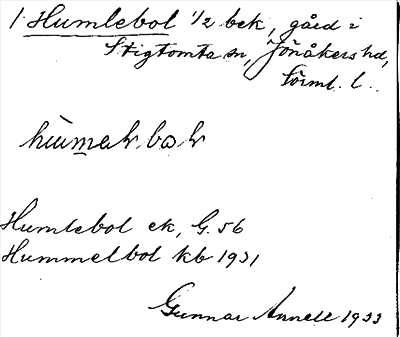 1 Humlebol 1/2 bek, gård i
Stigtomta sn, Jönåkers hd,
Sörml. l.
Humlebol ek, G. 56
Hummelbol kb 1931
Gunnar Annell 1933